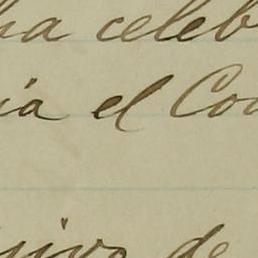 ha celeb
ia el Con
ivo de